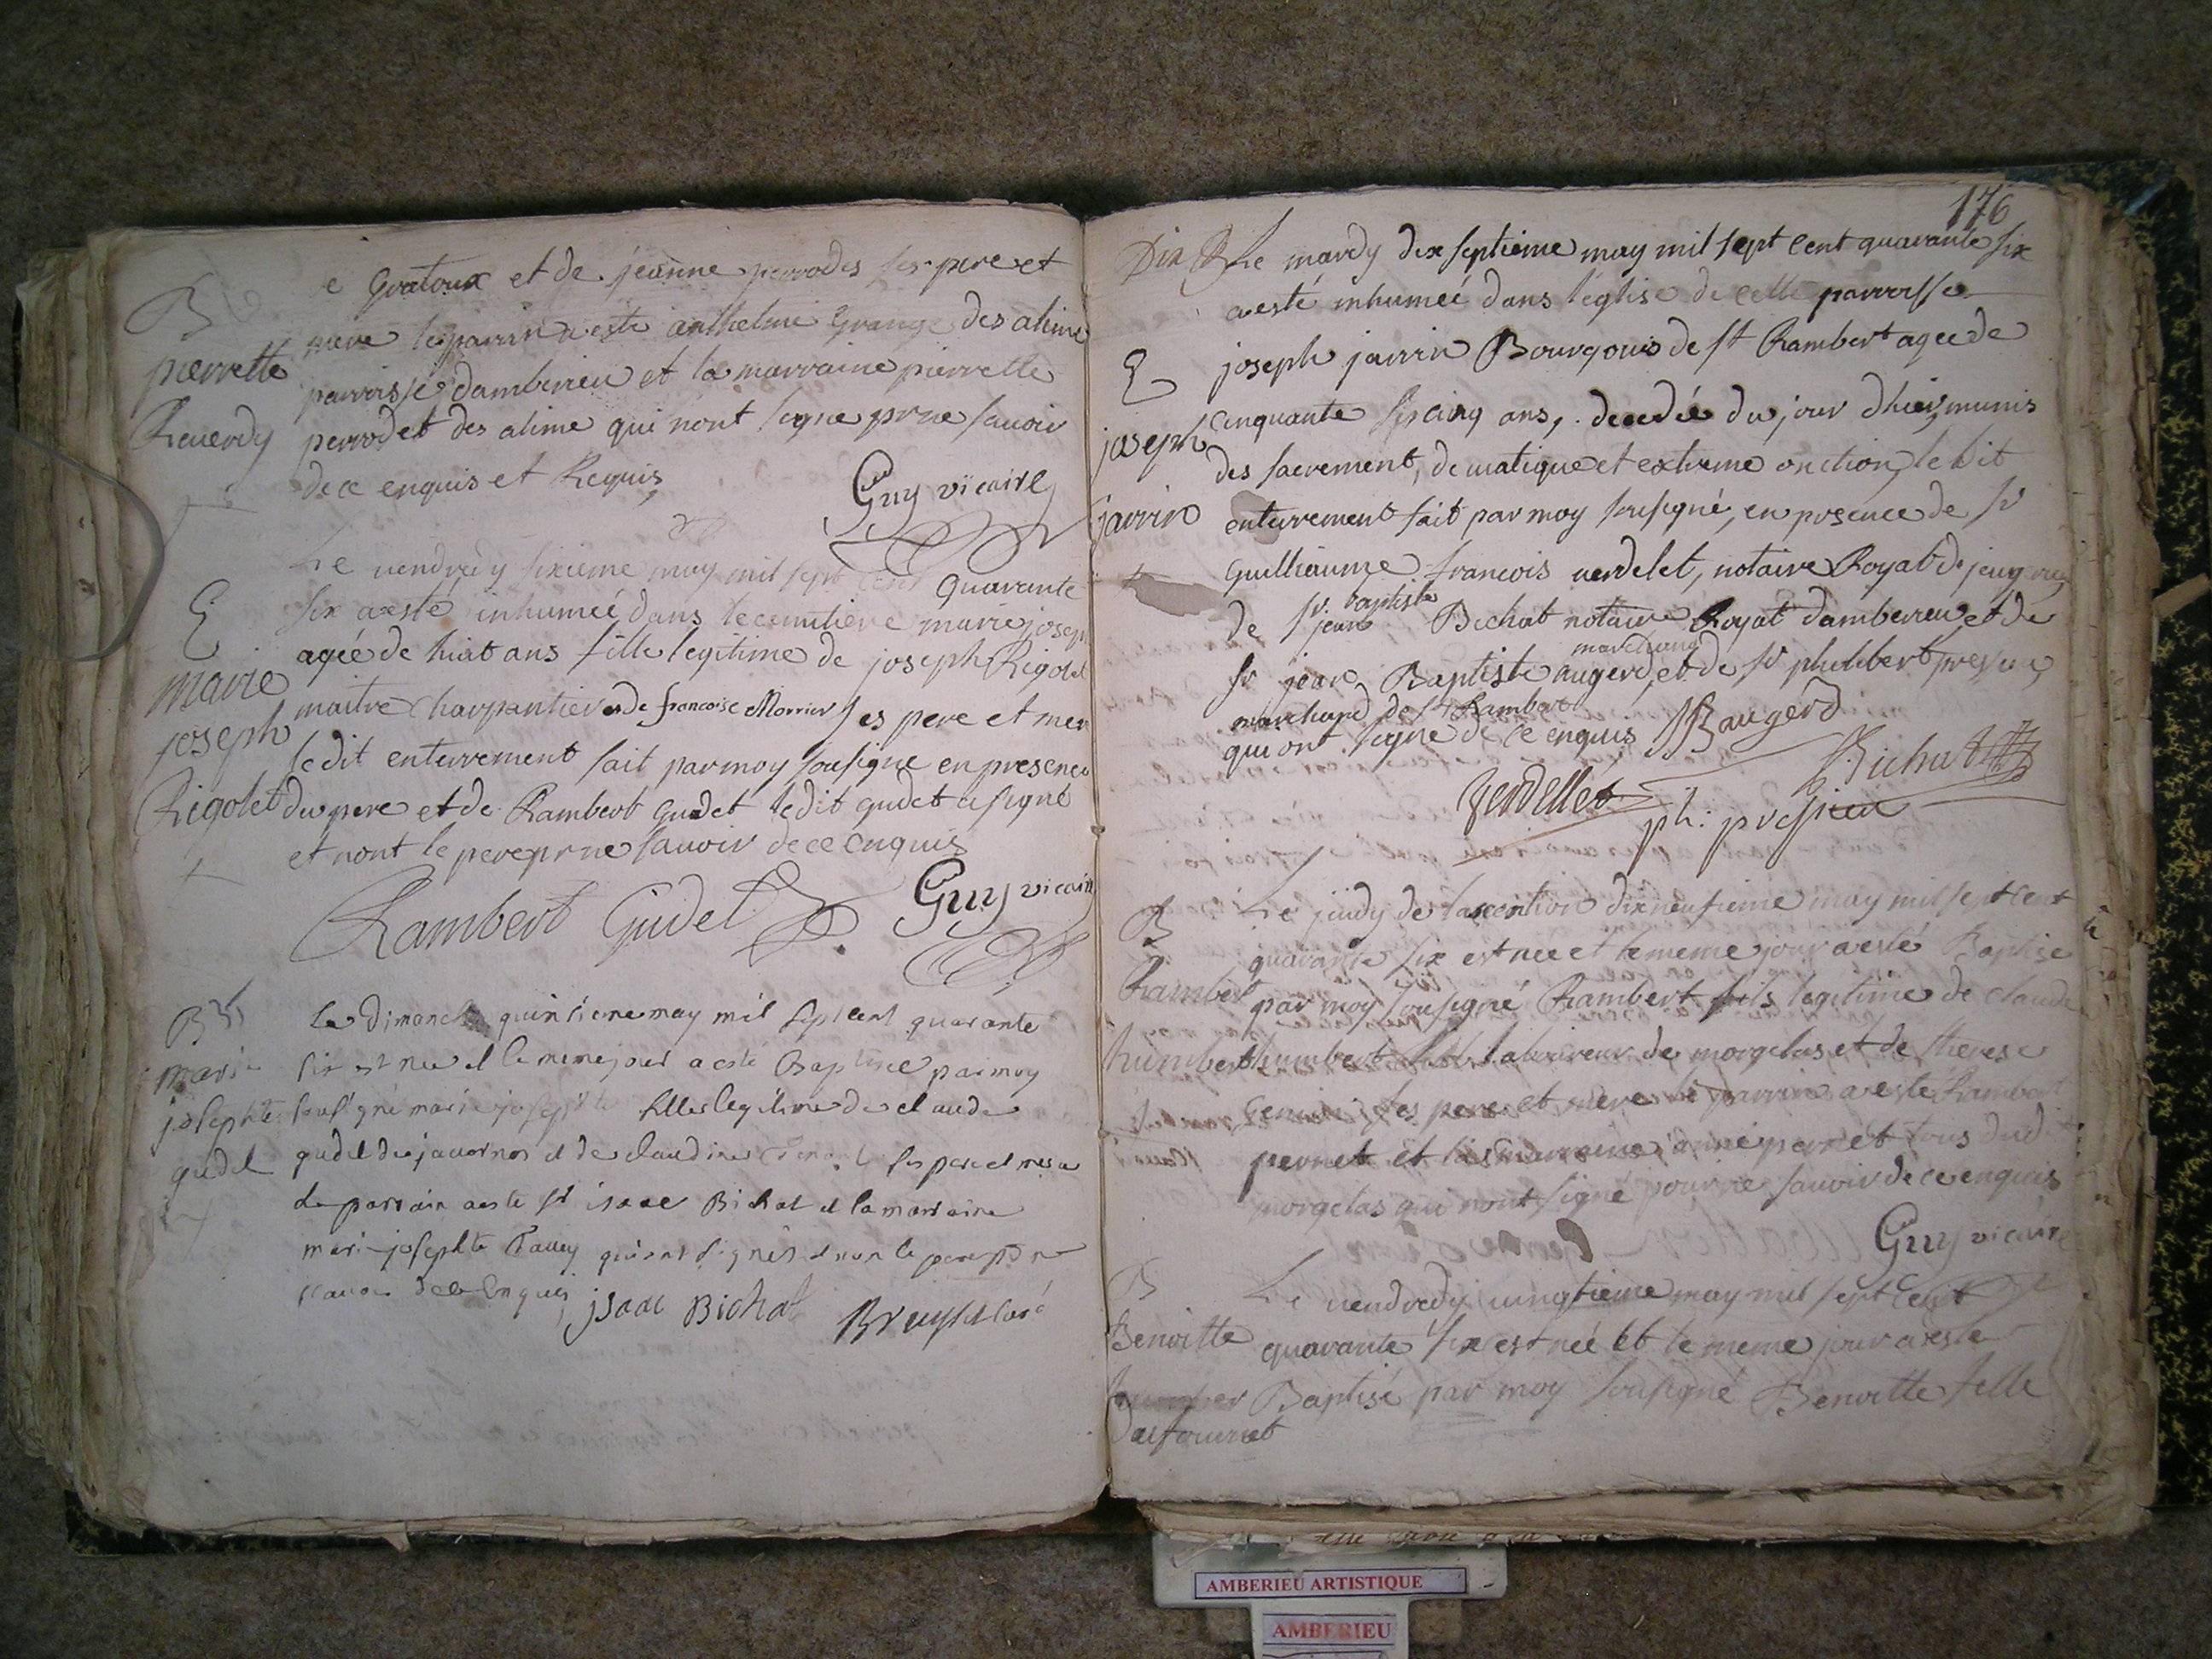 B
pierrette
Reverdy
e Gratoux et de jeanne perrodes ses pere et
mere le parrin a esté anthelme Grange des alime
parroisse dambérieu et la marraine pierrette
perrodet des alime qui n'ont signe pr ne savoir
de ce enquis et Requis
Guy vicaire
E
marie
joseph
Rigolet
Le vendredy sixieme may mil sept cent quarante
six a esté inhumeé dans le cemitiere marie josep
ageé de huit ans fille legitime de joseph Rigolet
maitre charpantier et de francoise Morrier ses pere et mere
le dit enterrement fait par moy sousigne en presence
du pere et de Rambert Gudet le dit gudet a signé
et nont le pere pr ne savoir de ce enquis
Rambert Gudet Guy vicaire
B
marie
josephte
gudet
Le Dimanche quinzieme may mil sept cent quarante
six est née et le meme jour a esté Baptisée par moy
sousigné marie josephte fille legitime de claude
gudet de javornos et de claudine ses pere et mere
le parrain a esté sr isaac Bichat et la marraine
marie josephte qui ont signés et non le pere pr ne
scavoir de ce Enquis
jsaac Bichat
176
Le mardy dix septieme may mil sept cent quarante six
a esté inhumeé dans l'église de cette parroisse
E
joseph
jarrin
joseph jarrin Bourgouis de st Rambert ageé de
cinquante cinq ans, decedée du jour dhier, munis
des sacrement, de viatique et extreme onction, le dit
enterrement fait par moy sousigné, en presence de sr
Guilliaume francois verdelet, notaire Royal de
de sr. jean baptiste Bichat notaire Royal damberieu et de
sr jean Baptiste augerd marchand et de sr philibert
marchand de st Rambert
qui ont signé de ce enquis JB augerd
Verdellet Bichat
ph: presieu
B
Rambert
humbert
Le jeudy de lascention dix neufieme may mil sept cent
quarante six est nee et le meme jour a esté Baptise
par moy sousigné Rambert fils legitime de claude
humbert laboureur de morgelas et de therese
ses pere et mere le parrin a esté Rambert
pernet et la marraine anne pernet tous dudt
morgelas qui nont signé pour ne savoir de ce enquis
Guy vicaire
B
Benoitte
Dufournet
Le vendredy vingtieme may mil sept cent
quarante six est neé et le meme jour a esté
Baptisé par moy sousigné Benoitte fille
AMBERIEU ARTISTIQUE
AMBERIEU